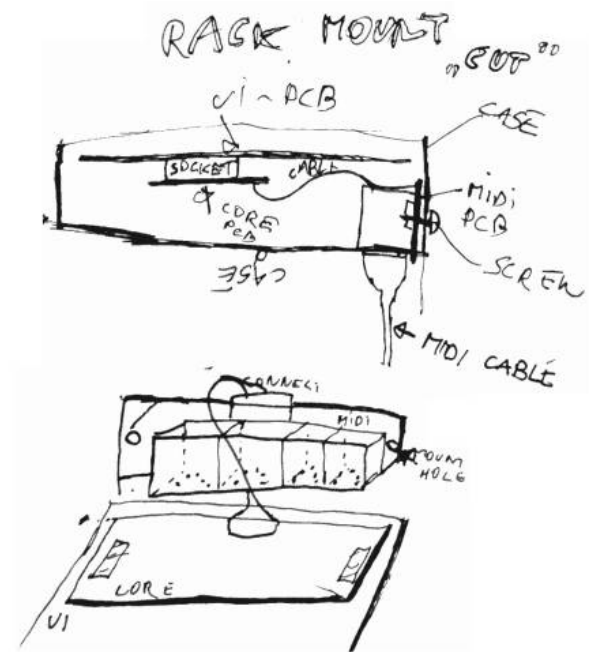 RACK MOUNT
„CUT"
UI - PCB
CASE
SOCKET
CABLE
MIDI
PCB
CORE
PCB
SCREW
CASE
MIDI CABLE
CONNECT
MIDI
MOUNT
HOLE
CORE
UI